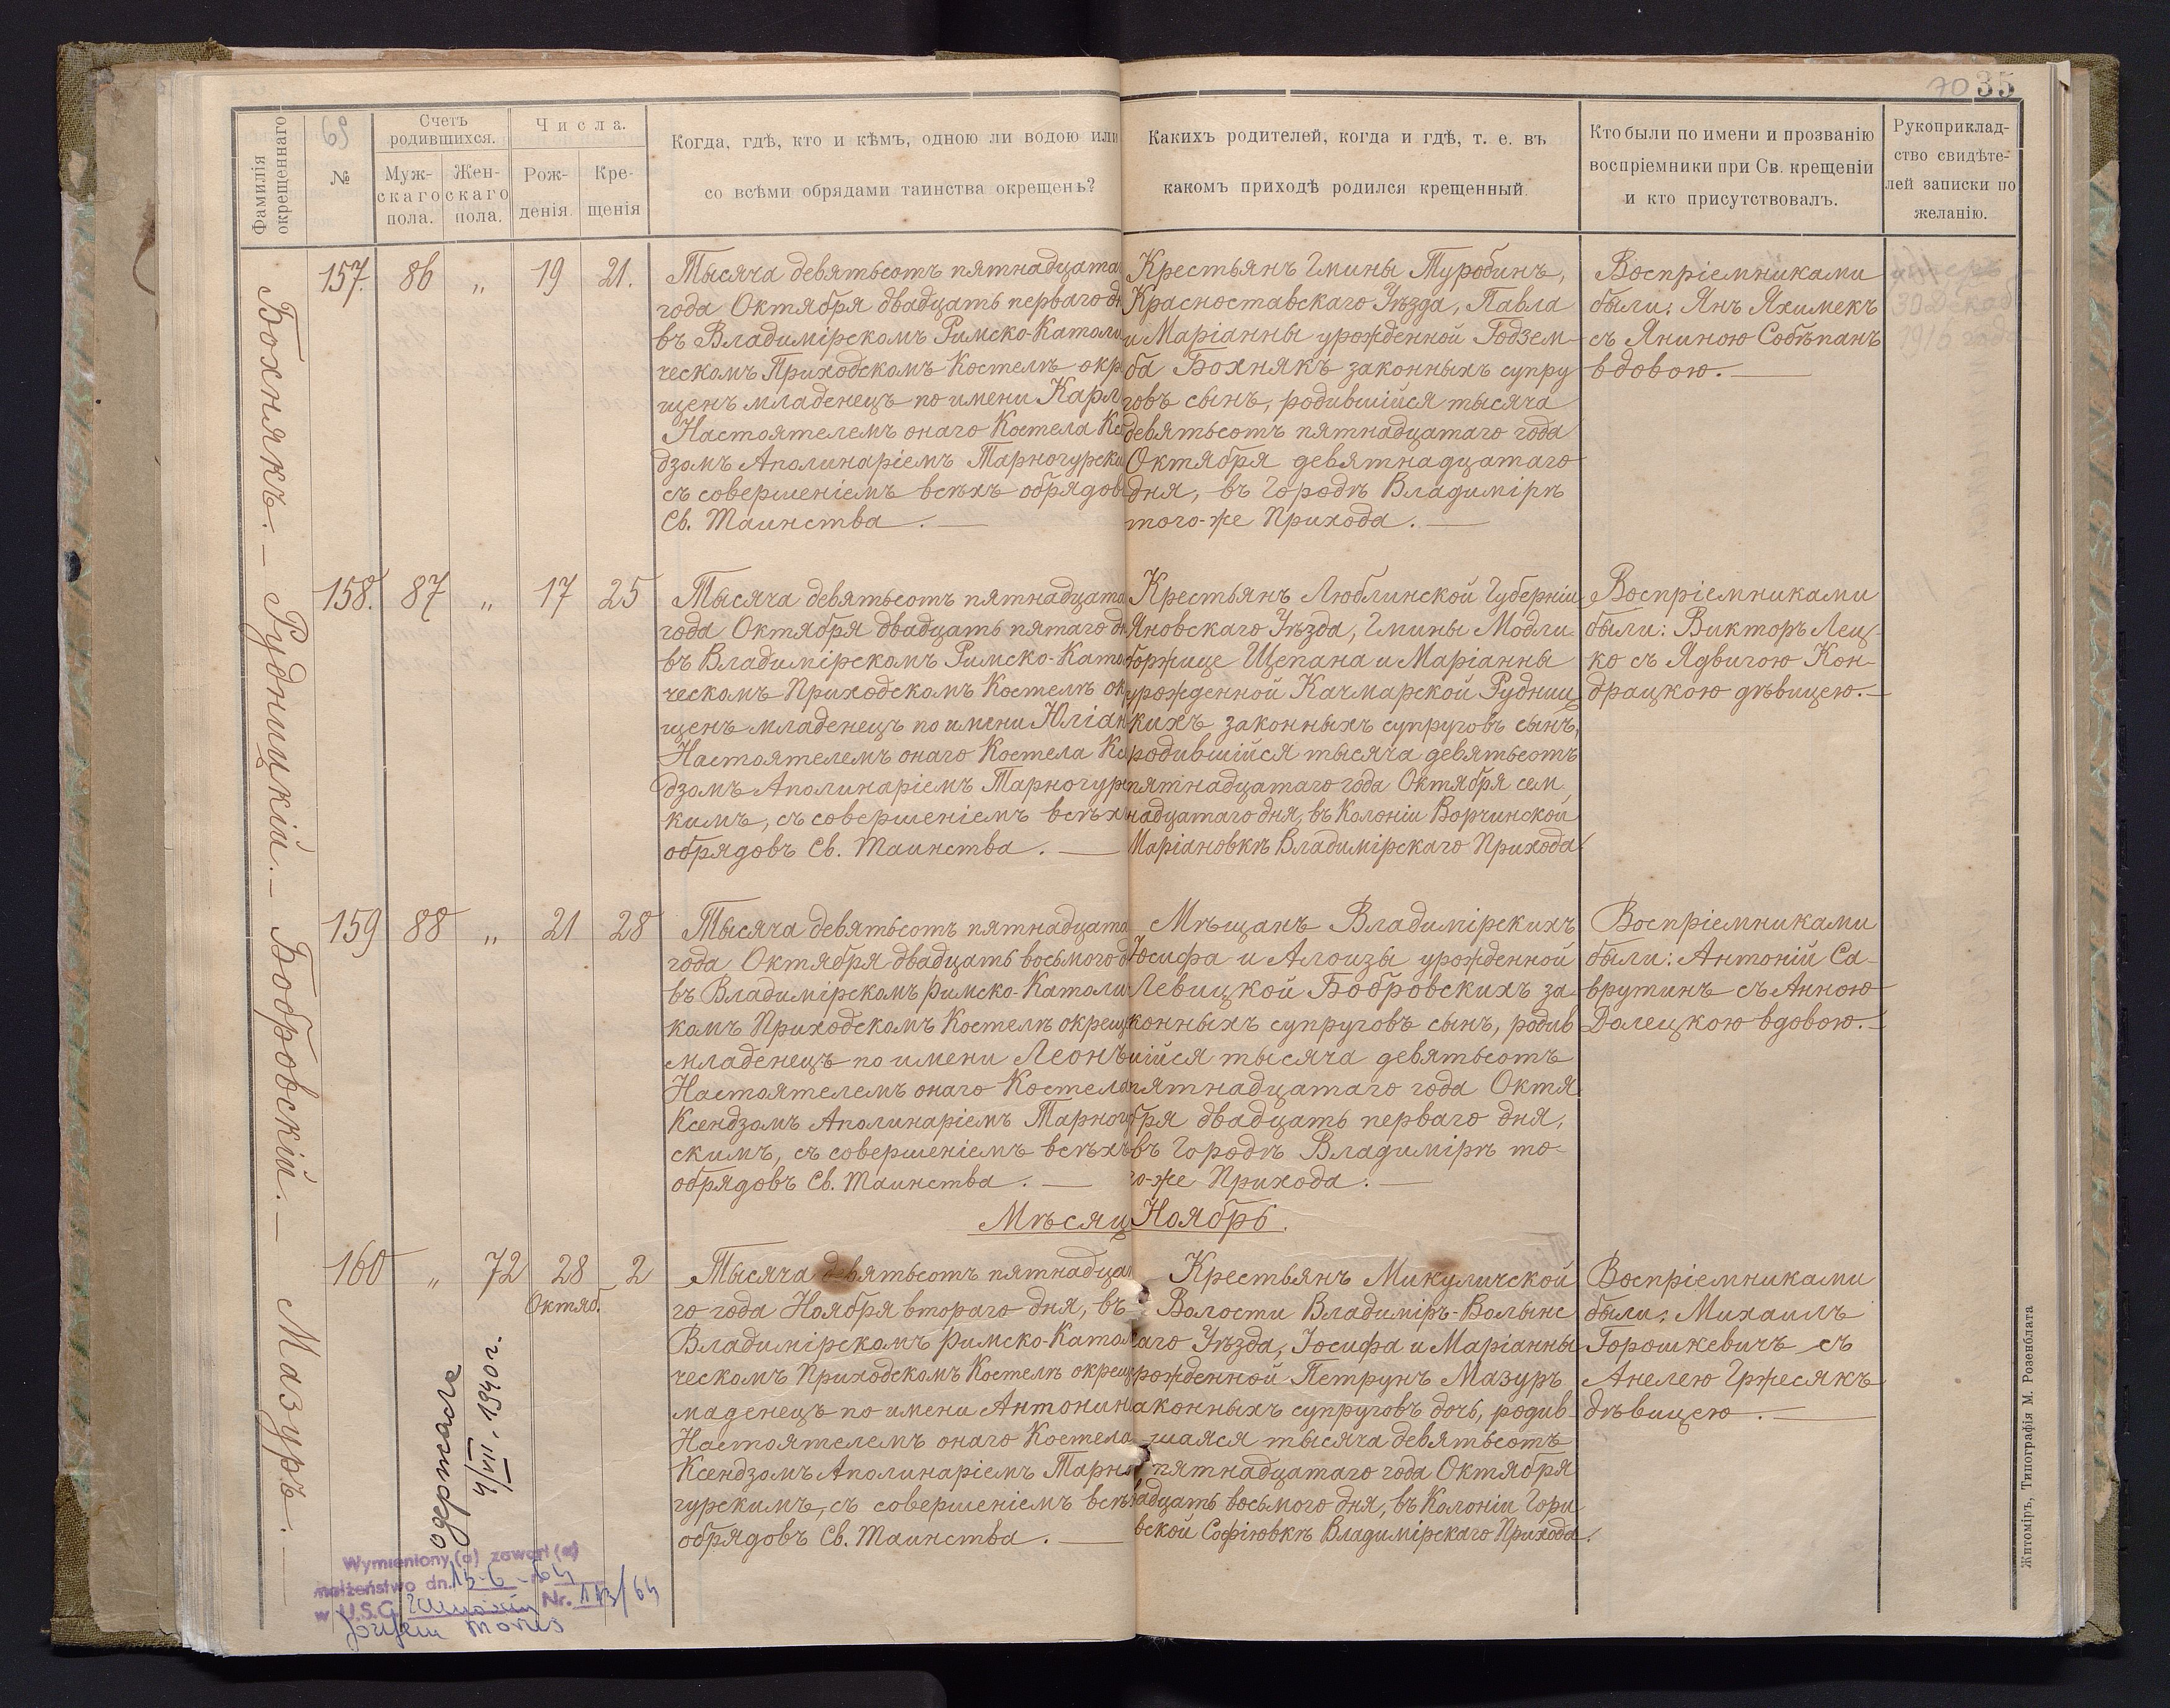 70 35
Фамилія окрещеннаго
69
№
Счетъ родившихся.
Муж-
скаго
пола.
Жен-
скаго
пола.
Числа.
Рож-
денія.
Кре-
щенія
Когда, гдѣ, кто и кѣмъ, одною ли водою или
со всѣми обрядами таинства окрещенъ?
Какихъ родителей, когда и гдѣ, т. е. въ
какомъ приходѣ родился крещенный.
Кто были по имени и прозванію
воспріемники при Св. крещеніи
и кто присутствовалъ.
Рукоприклад-
ство свидѣте-
лей записки по
желанію.
Бохнякъ. —
157. 86 „ 19 21.
Тысяча девятьсотъ пятнадцата
года Октября двадцать перваго дн
въ Владимірскомъ Римско-Католи
ческомъ Приходскомъ Костелѣ окр
щенъ младенецъ по имени Карл
Настоятелемъ онаго Костела Кс
дзомъ Аполинаріемъ Тарногурски
съ совершеніемъ всѣхъ обрядов
Св. Таинства. —
Крестьянъ Гмины Туробинъ,
Красноставскаго Уѣзда, Павла
и Маріанны урожденной Годзем-
ба Бохнякъ законныхъ супру
говъ сынъ, родившійся тысяча
девятьсотъ пятнадцатаго года
Октября девятнадцатаго
дня, въ Городѣ Владимірѣ
того-же Прихода. —
Воспріемниками
были: Янъ Яхимекъ
съ Яниною Собѣпанъ
вдовою. —
30 Декаб
1916 года
Рудницкій. —
158. 87 „ 17 25
Тысяча девятьсотъ пятнадцата
года Октября двадцать пятаго дн
въ Владимірскомъ Римско-Като
ческомъ Приходскомъ Костелѣ ок
щенъ младенецъ по имени Юліан
Настоятелемъ онаго Костела Кс
дзомъ Аполинаріемъ Тарногур
кимъ, съ совершеніемъ всѣх
обрядовъ Св. Таинства. —
Крестьянъ Люблинской Губерніи
Яновскаго Уѣзда, Гмины Модли
боржице Щепана и Маріанны
урожденной Качмарской Рудниц
кихъ законныхъ супруговъ сынъ,
родившійся тысяча девятьсотъ
пятнадцатаго года Октября сем
надцатаго дня, въ Колоніи Ворчинской
Маріановкѣ Владимірскаго Прихода.
Воспріемниками
были: Викторъ Лец-
ко съ Ядвигою Кон-
драцкою дѣвицею. —
Бобровскій. —
159 88 „ 21 28
Тысяча девятьсотъ пятнадцата
года Октября двадцать восьмого д
въ Владимірскомъ Римско-Католи
комъ Приходскомъ Костелѣ окрещ
младенецъ по имени Леонъ
Настоятелемъ онаго Костела
Ксендзомъ Аполинаріемъ Тарногу
скимъ, съ совершеніемъ всѣхъ
обрядовъ Св. Таинства. —
Мѣщанъ Владимірскихъ
Іосифа и Алоизы урожденной
Левицкой Бобровскихъ за-
конныхъ супруговъ сынъ, родив
шійся тысяча девятьсотъ
пятнадцатаго года Октя
бря двадцать перваго дня,
въ Городѣ Владимірѣ то-
го-же Прихода. —
Воспріемниками
были: Антоній Са-
врутинъ съ Анною
Долецкою вдовою. —
Мѣсяц Ноябрь.
Мазуръ. —
160 „ 72 28 2
Октяб.
Тысяча девятьсотъ пятнадца
го года Ноября втораго дня, въ
Владимірскомъ Римско-Като
ческомъ Приходскомъ Костелѣ окрещ
маденецъ по имени Антонин
Настоятелемъ онаго Костела
Ксендзомъ Аполинаріемъ Тарно
гурскимъ, съ совершеніемъ всѣ
обрядовъ Св. Таинства. —
Крестьянъ Микуличской
Волости Владиміръ-Волынс
каго Уѣзда, Іосифа и Маріанны
рожденной Петрунъ Мазуръ
аконныхъ супруговъ дочь, родив-
шаяся тысяча девятьсотъ
пятнадцатаго года Октября
вадцать восьмого дня, въ Колоніи Гори
вской Софіювкѣ Владимірскаго Прихода.
Воспріемниками
были: Михаилъ
Горошкевичъ съ
Анелею Гржесякъ
дѣвицею. —
одержала
4/VII. 1940 г.
Wymieniony (a) zawarł (a)
małżeństwo dn. 15-6-64
w U.S.C. Nr. 113/64
Житоміръ, Типографія М. Розенблата